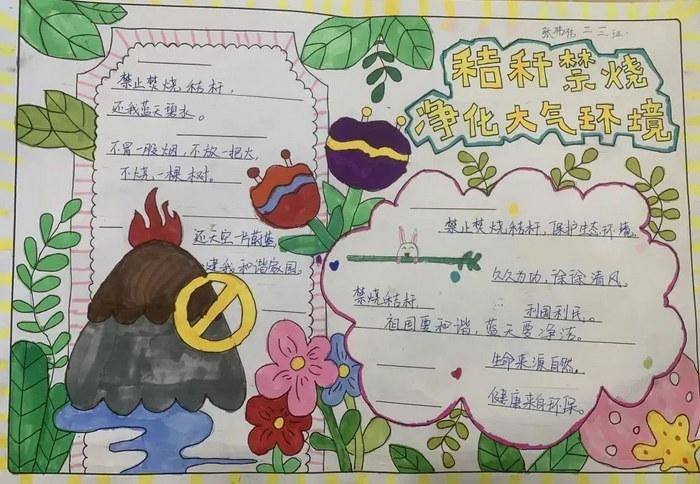 二三班
秸秆禁烧
净化大气环境
禁止焚烧秸秆,
还我蓝天碧水。
不冒一股烟,不放一把火,
不烧一棵树。
还天空一片蔚蓝
建我和谐家园。
禁止焚烧秸秆,保护生态环境。
久久为功,徐徐清风。
禁烧秸秆
利国利民。
祖国要和谐,蓝天要净洁。
生命来源自然,
健康来自环保。